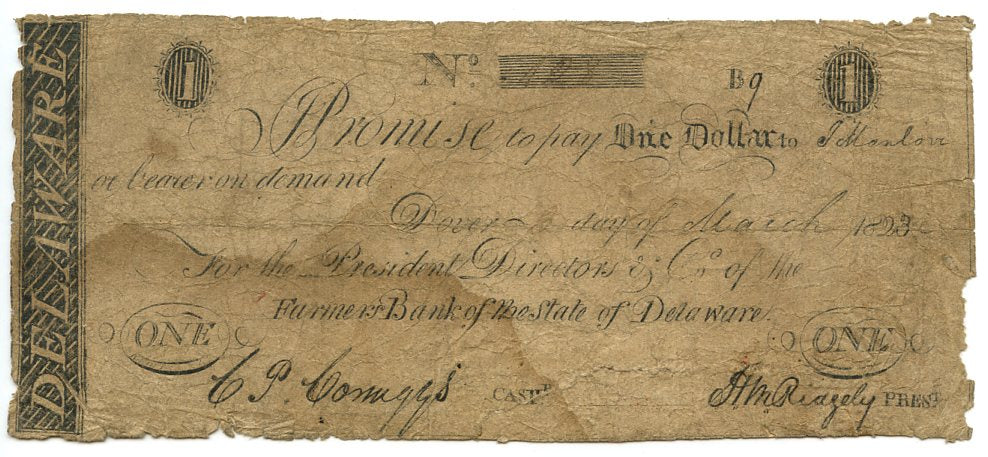 DELAWARE
1 No. 1
B 9
I Promise to pay One Dollar to J Manlove
or bearer on demand
Dover day of March 1823
For the President Directors & Co. of the
Farmers Bank of the State of Delaware.
ONE ONE
C P Comegys CASHR. H M Ridgely PREST.